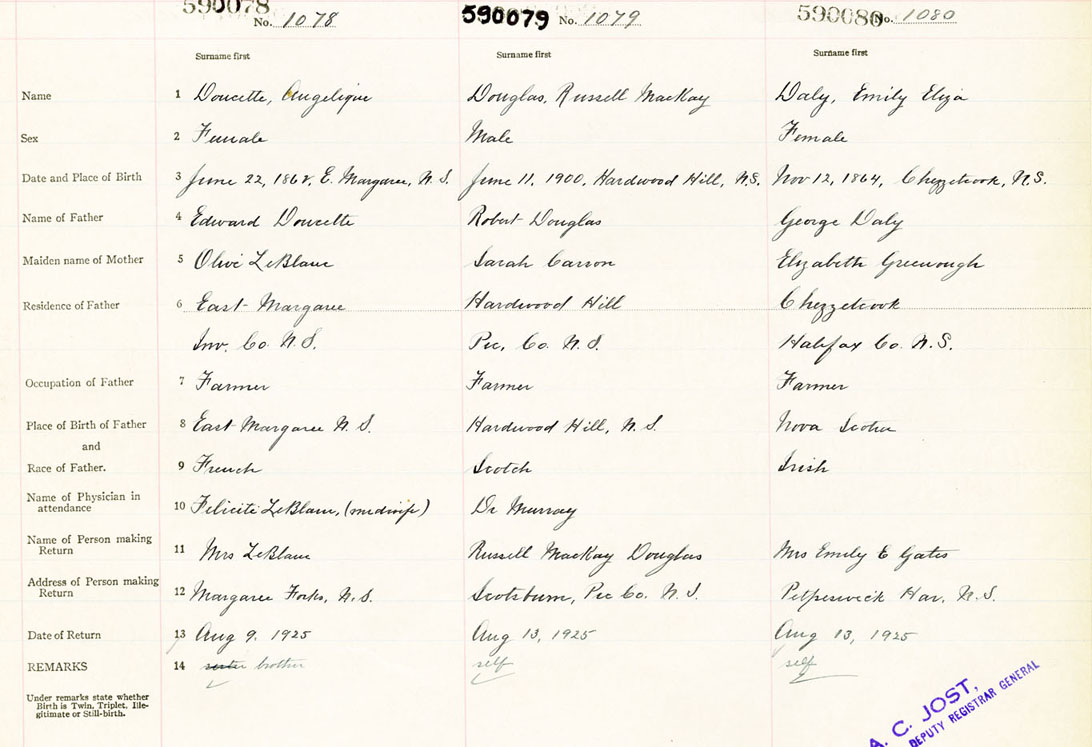 590078 No. 1078 590079 No. 1079 590080 No. 1080
Surname first Surname first Surname first
Name 1 Doucette, Angelique Douglas, Russell MacKay Daly, Emily Eliza
Sex 2 Female Male Female
Date and Place of Birth 3 June 22, 1868, E. Margaree, N.S. June 11, 1900, Hardwood Hill, N.S. Nov 12, 1864, Chezzetcook, N.S.
Name of Father 4 Edward Doucette Robert Douglas George Daly
Maiden name of Mother 5 Olive LeBlanc Sarah Carson Elizabeth Greenough
Residence of Father 6 East Margaree Hardwood Hill Chezzetcook
Inv. Co. N.S. Pic, Co. N.S. Halifax Co. N.S.
Occupation of Father 7 Farmer Farmer Farmer
Place of Birth of Father 8 East Margaree N.S. Hardwood Hill, N.S. Nova Scotia
and
Race of Father. 9 French Scotch Irish
Name of Physician in
attendance 10 Felicite LeBlanc, (midwife) Dr Murray
Name of Person making
Return 11 Mrs LeBlanc Russell MacKay Douglas Mrs Emily E Gates
Address of Person making
Return 12 Margaree Forks, N.S. Scotsburn, Pic Co. N.S. Petpeswick Har, N.S.
Date of Return 13 Aug 9, 1925 Aug 13, 1925 Aug 13, 1925
REMARKS 14 sister brother self self
Under remarks state whether
Birth is Twin, Triplet, Ille-
gitimate or Still-birth.
A. C. JOST,
DEPUTY REGISTRAR GENERAL